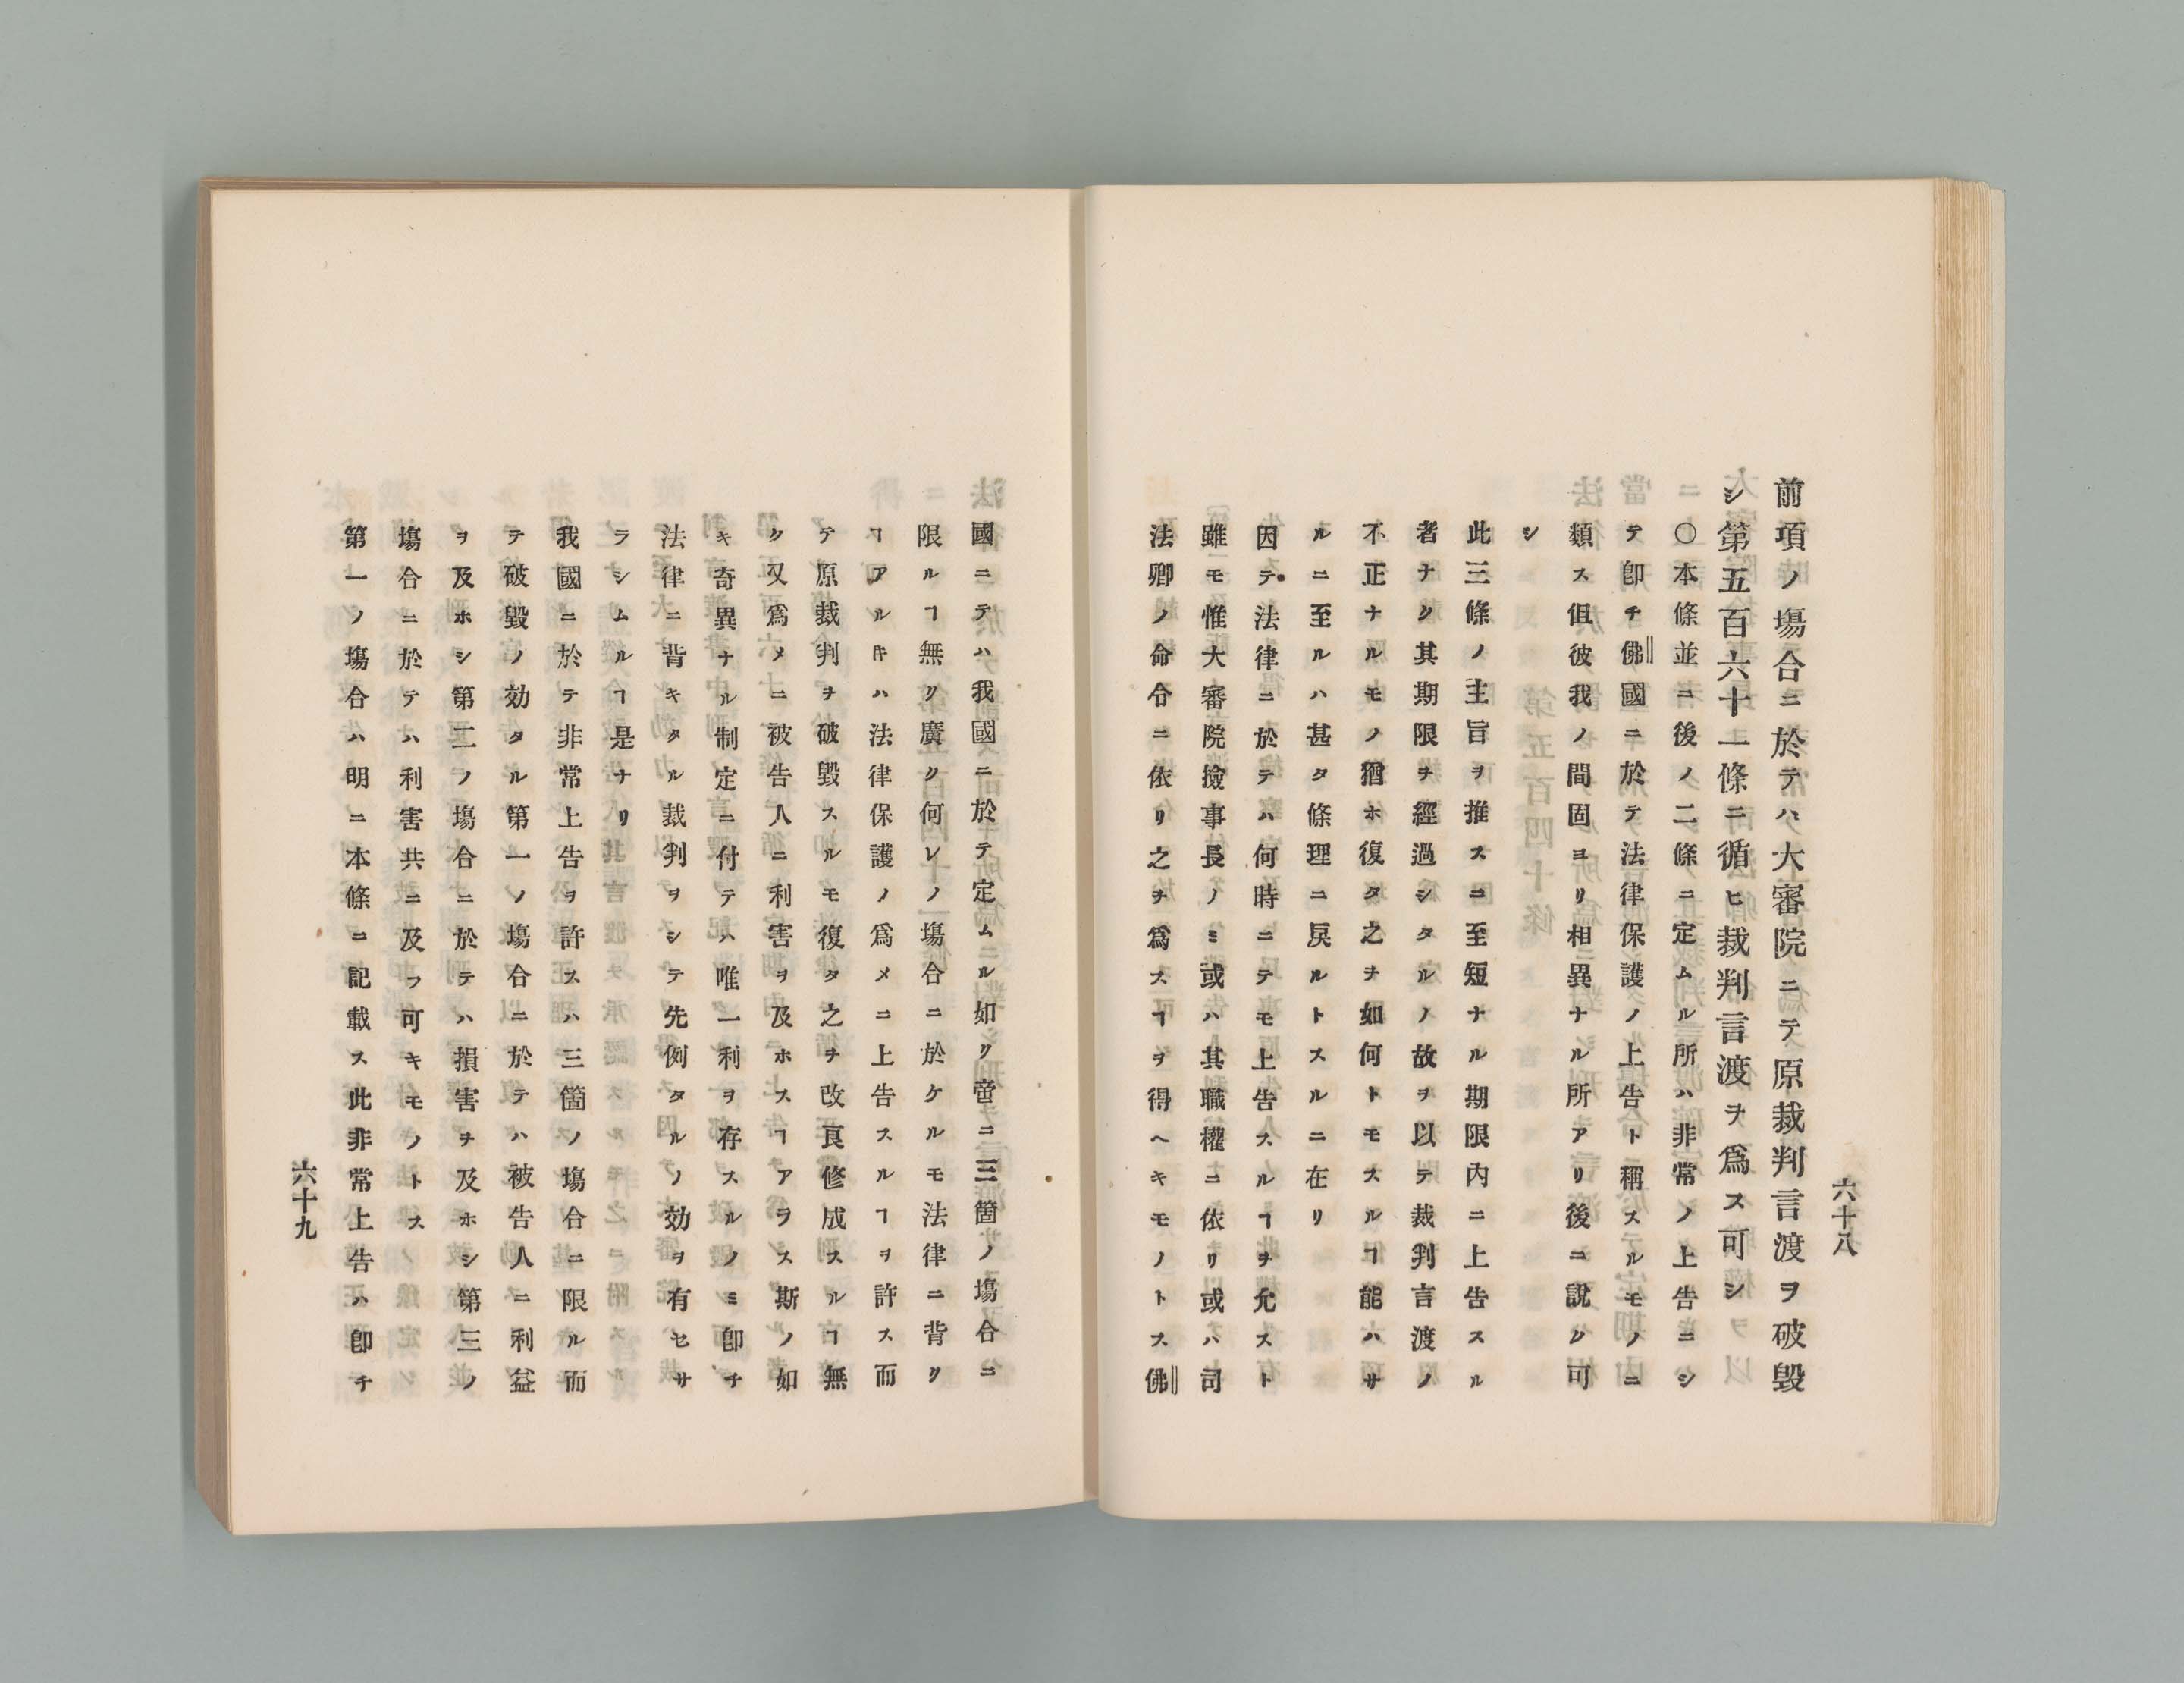 六十八
前項ノ塲合ニ於テハ大審院ニテ原裁判言渡ヲ破毀
シ第五百六十一條ニ循ヒ裁判言渡ヲ爲ス可シ
〇本條並ニ後ノ二條ニ定ムル所ハ非常ノ上告ニシ
テ卽チ佛國ニ於テ法律保護ノ上告ト稱スルモノニ
類ス伹彼我ノ間固ヨリ相異ナル所アリ後ニ說ク可
シ
此三條ノ主旨ヲ推スニ至短ナル期限內ニ上告スル
者ナク其期限ヲ經過シタルノ故ヲ以テ裁判言渡ノ
不正ナルモノ猶ホ復タ之ヲ如何トモスルヿ能ハサ
ルニ至ルハ甚タ條理ニ戾ルトスルニ在リ
因テ法律ニ於テハ何時ニテモ上告スルヿヲ允スト
雖モ惟大審院撿事長ノミ或ハ其職權ニ依リ或ハ司
法卿ノ命令ニ依リ之ヲ爲スヿヲ得ヘキモノトス佛
國ニテハ我國ニ於テ定ムル如ク啻ニ三箇ノ塲合ニ
限ルヿ無ク廣ク何レノ塲合ニ於ケルモ法律ニ背ク
ヿアルキハ法律保護ノ爲メニ上告スルヿヲ許ス而
テ原裁判ヲ破毀スルモ復タ之ヲ改良修成スルヿ無
ク又爲メニ被告人ニ利害ヲ及ホスヿアラス斯ノ如
キ奇異ナル制定ニ付テハ唯一利ヲ存スルノミ卽チ
法律ニ背キタル裁判ヲシテ先例タルノ効ヲ有セサ
ラシムルヿ是ナリ
我國ニ於テ非常上告ヲ許スハ三箇ノ塲合ニ限ル而
テ破毀ノ効タル第一ノ塲合ニ於テハ被告人ニ利益
ヲ及ホシ第二ノ塲合ニ於テハ損害ヲ及ホシ第三ノ
塲合ニ於テハ利害共ニ及フ可キモノトス
第一ノ塲合ハ明ニ本條ニ記載ス此非常上告ハ卽チ
六十九